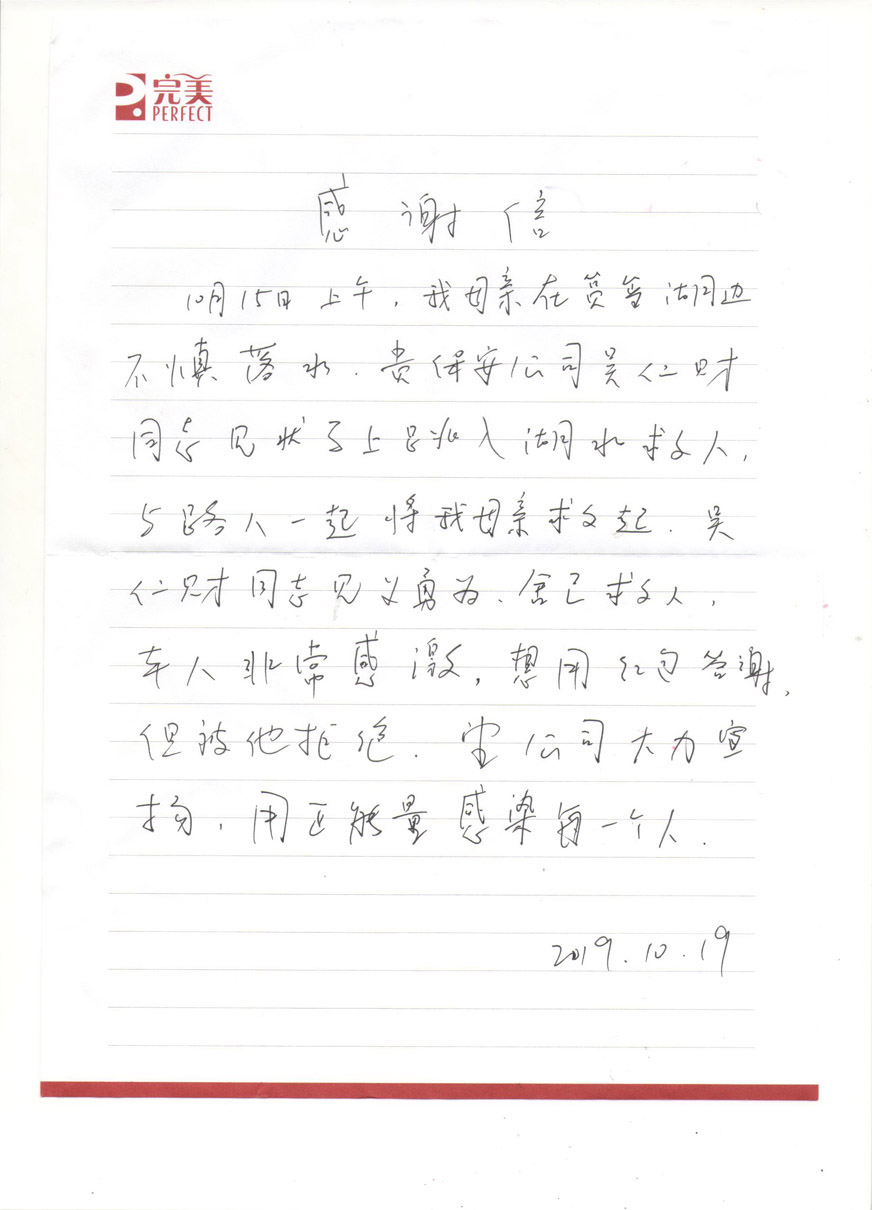 完美
PERFECT
感谢信
10月15日上午，我母亲在筼筜湖边
不慎落水.贵保安公司吴仁财
同志见状马上跳入湖水救人，
与路人一起将我母亲救起.吴
仁财同志见义勇为、舍己救人，
本人非常感激，想用红包答谢，
但被他拒绝.望公司大力宣
扬，用正能量感染每一个人.
2019.10.19